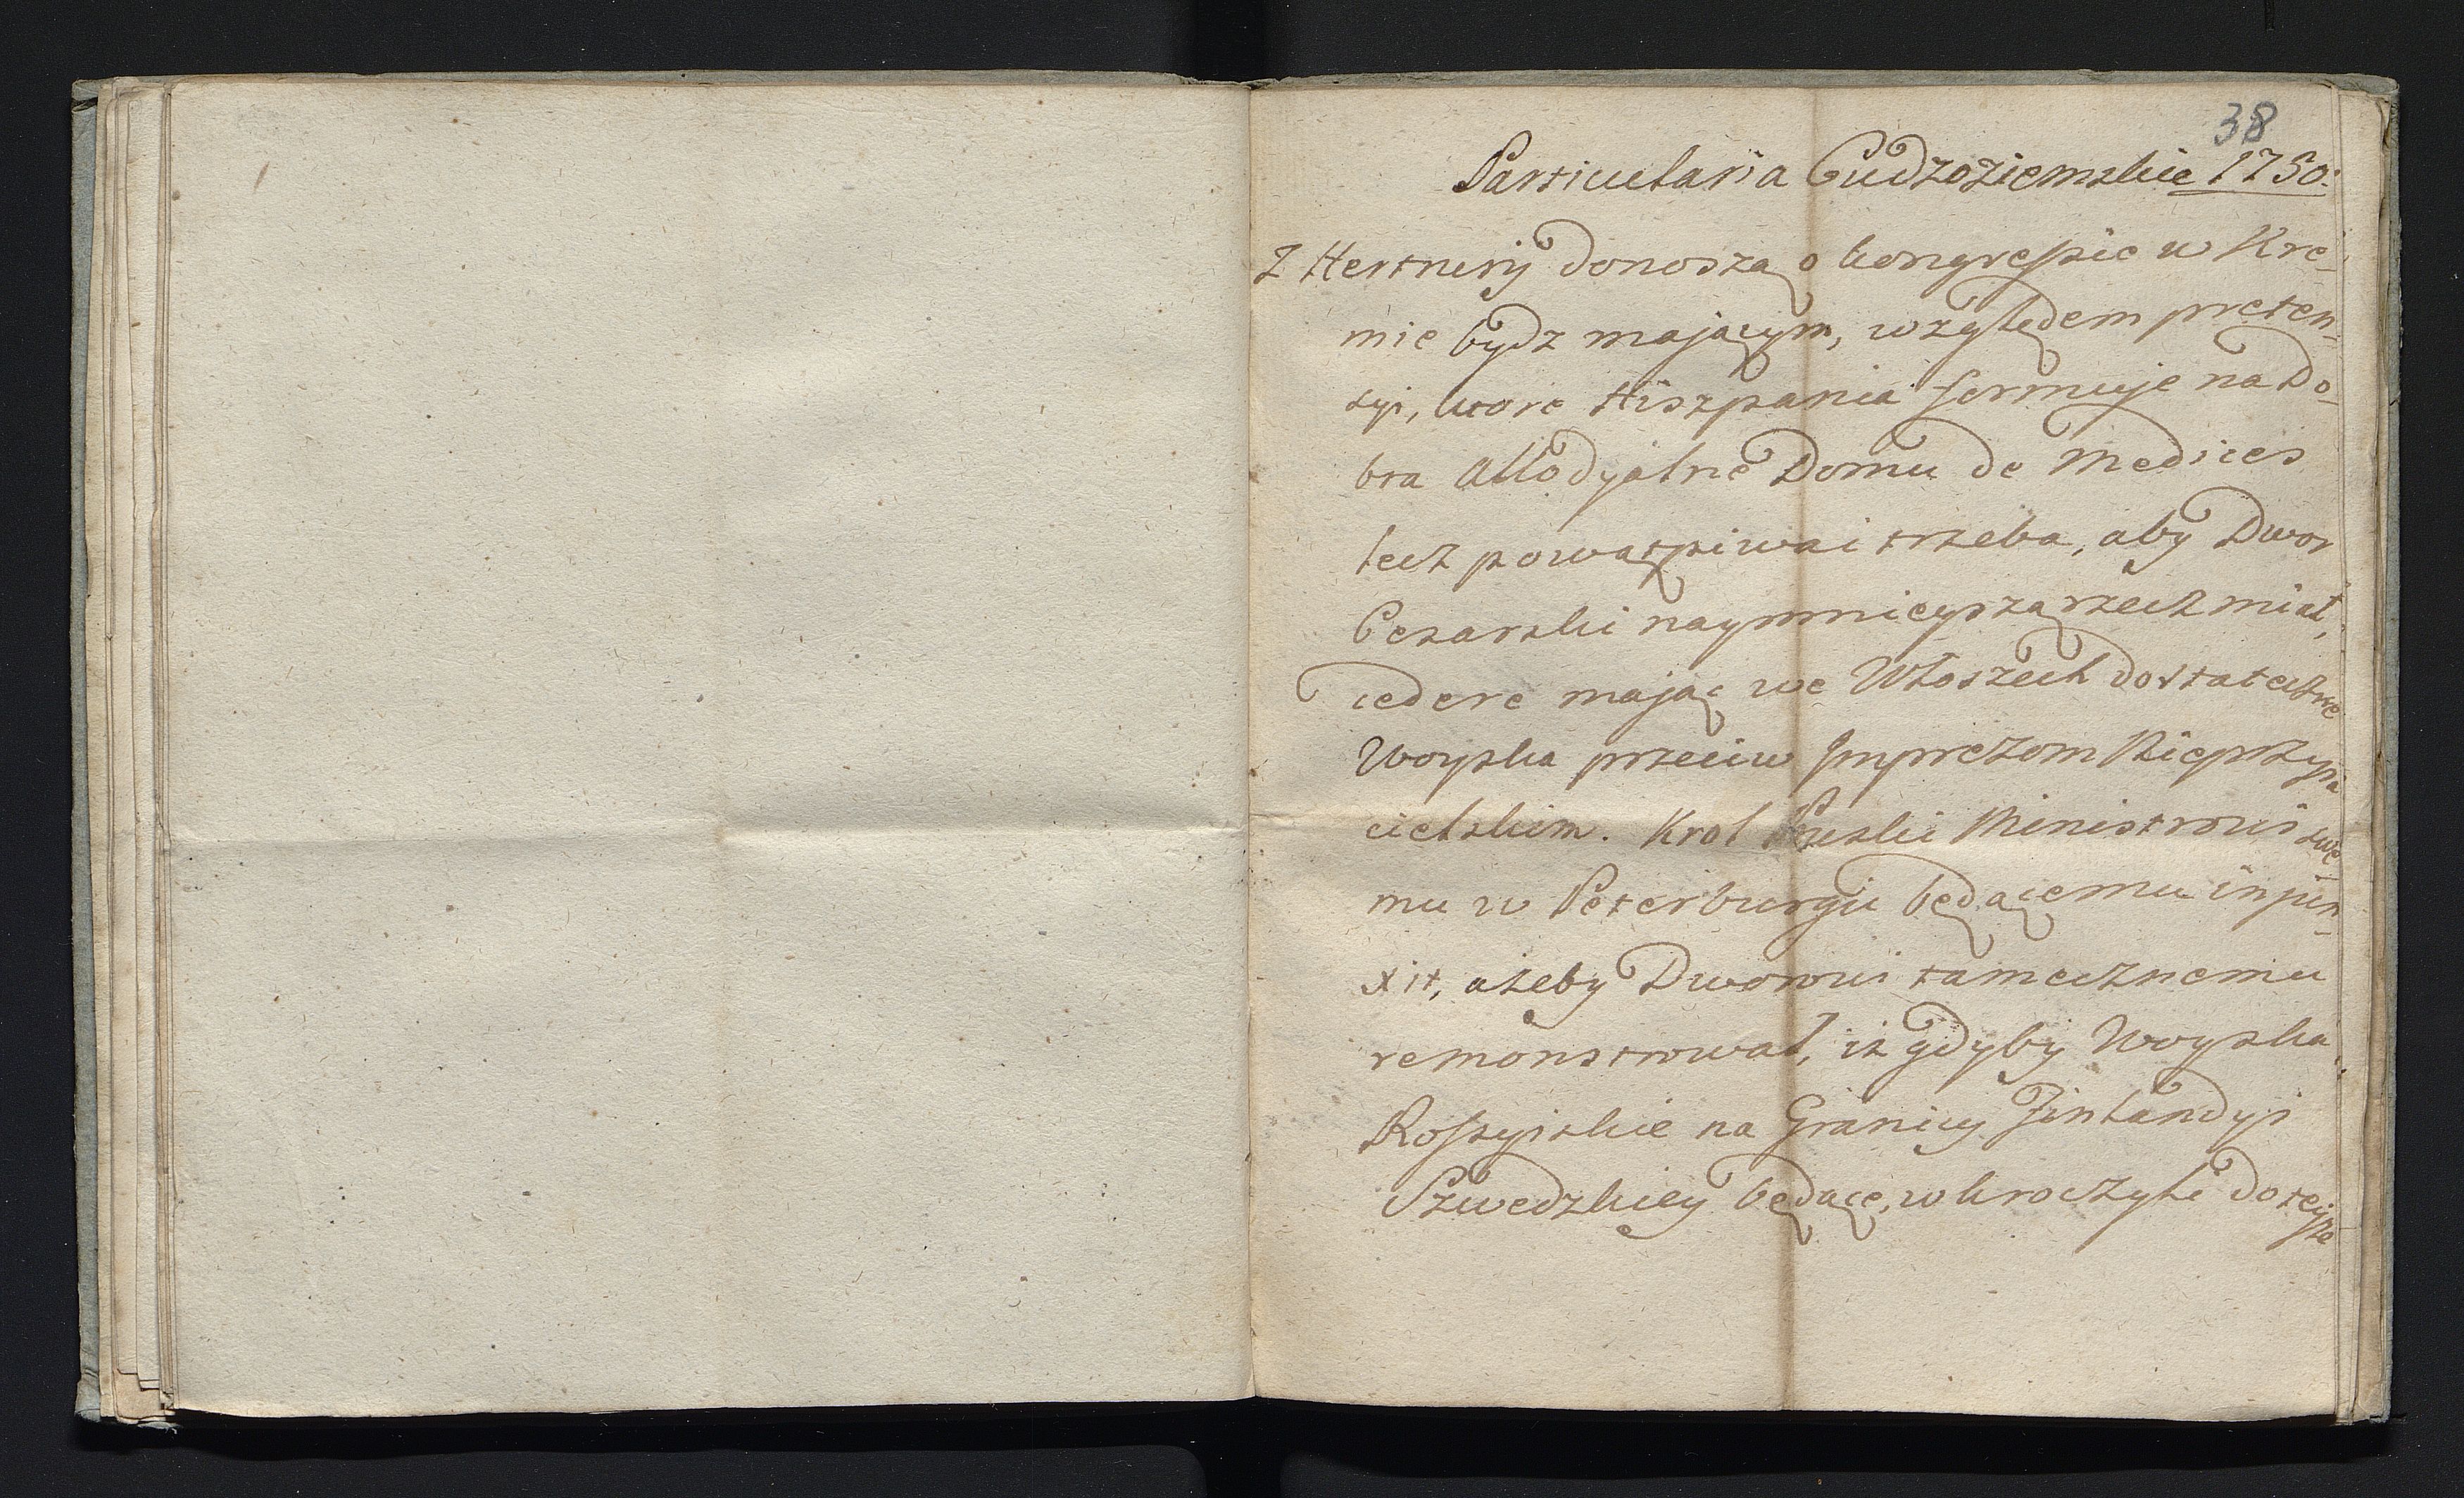 38
Particularia Cudzoziemskie 1750.
Z Hetrury donoszą o kongressie w Kre-
mie bydz mającym, względem preten-
syi, ktore Hiszpania formuje na Do-
bra Allodyalne Domu de Medices
lecz powątpiwać trzeba, aby Dwor
Cesarski naymnieyszą rzecz miał,
cedere mając we Włoszech dostateczne
Woyska przeciw Imprezom Nieprzyia
cielskim. Krol Pruski Ministrowi swe
mu w Peterburgu będącemu injun-
xit, ażeby Dworowi tamecznemu
remonstrował, iż gdyby Woyska
Rossyiskie na Granicy Finlandyi
Szwedzkiey będące, wkroczyłe do teyże